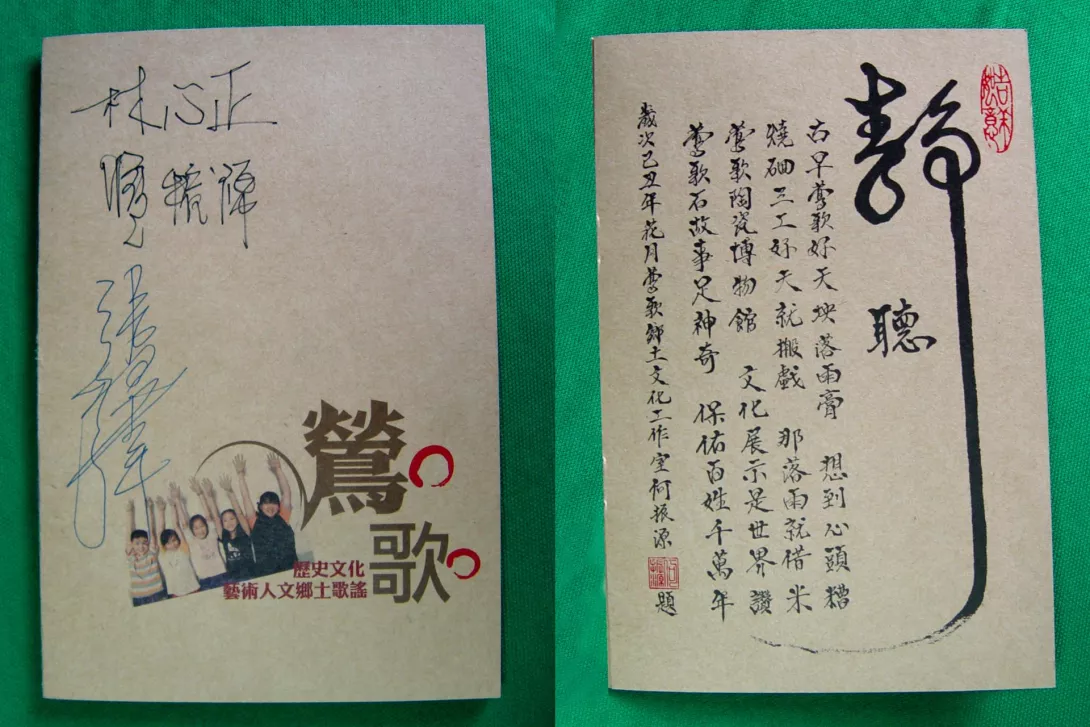 林心正
鶯歌
歷史文化
藝術人文鄉土歌謠
吉祥如意
靜聽
古早鶯歌好天坱落雨膏 想到心頭糟
燒 三工好天就搬戲 那落雨就借米
鶯歌陶瓷博物館 文化展示是世界讚
鶯歌石故事足神奇 保佑百姓千萬年
歲次己丑年花月鶯歌鄉土文化工作室何振源 題